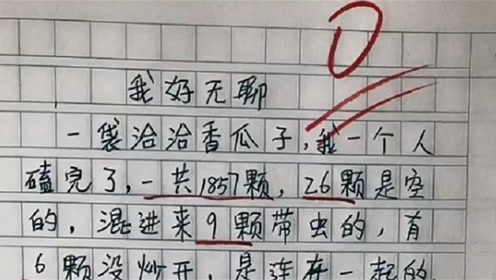 0
我好无聊
一袋洽洽香瓜子,我一个人
磕完了,一共1857颗,26颗是空
的,混进来9颗带虫的,有
6颗没炒开,是连在一起的